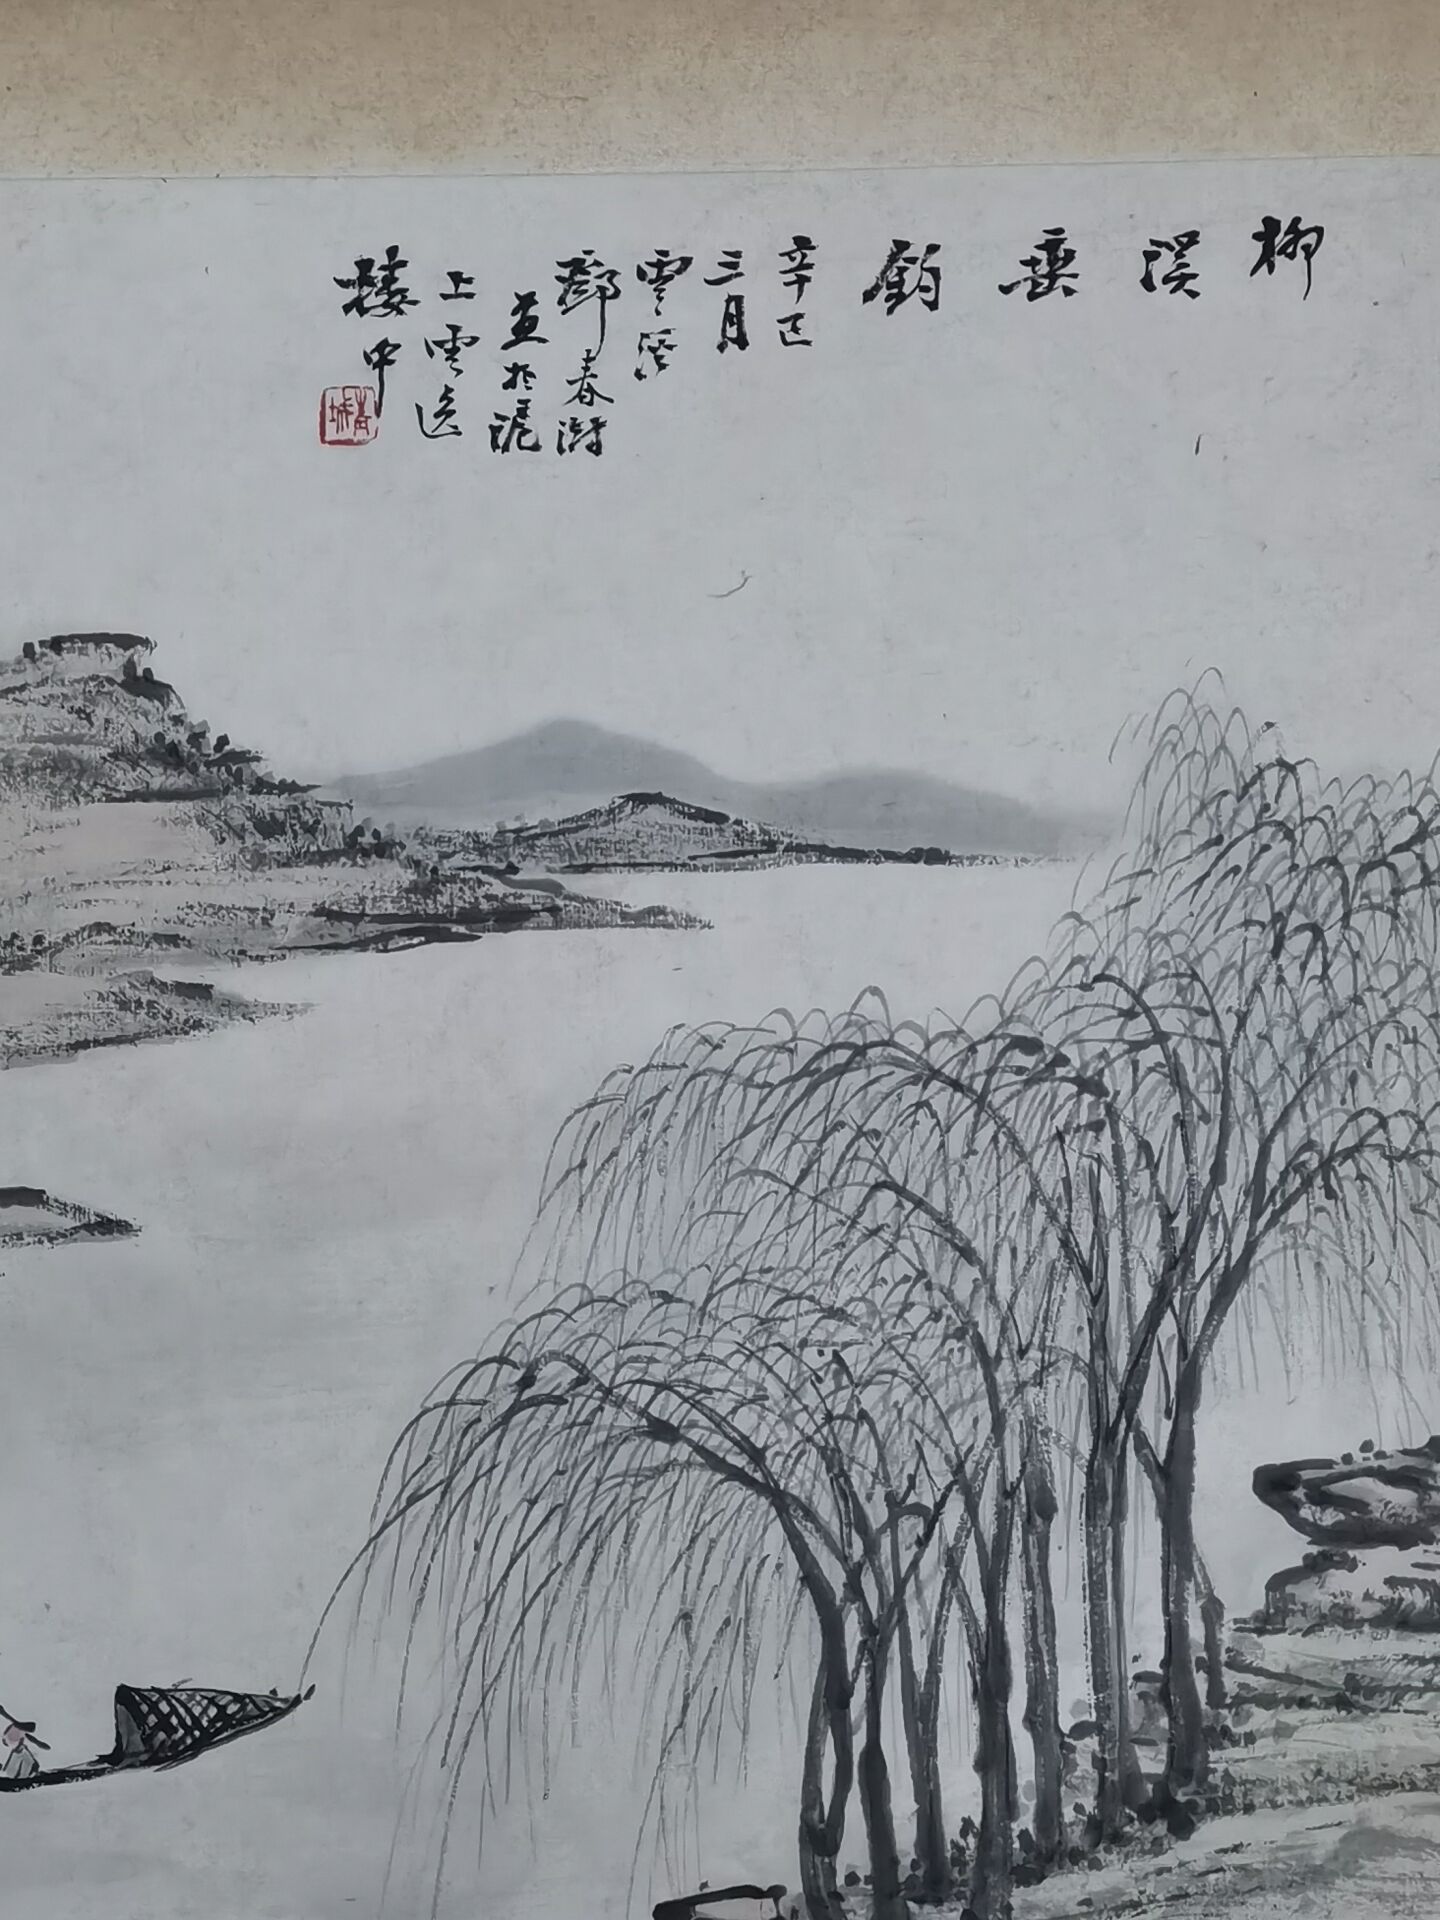 柳
溪
垂
釣
辛巳
三月
雲溪
鄧春澍
並於
上雲逸
樓中
青城